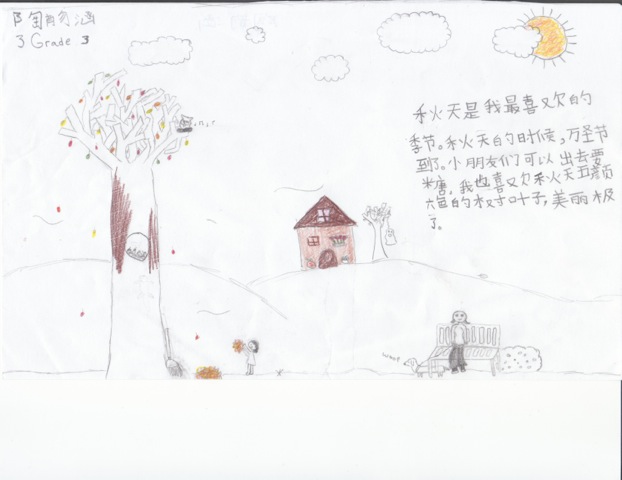 3 Grade 3
秋天是我最喜欢的
季节。秋天的时候，万圣节
到了。小朋友们可以出去要
糖，我也喜欢秋天五颜
六色的树叶子，美丽极
了。
woof